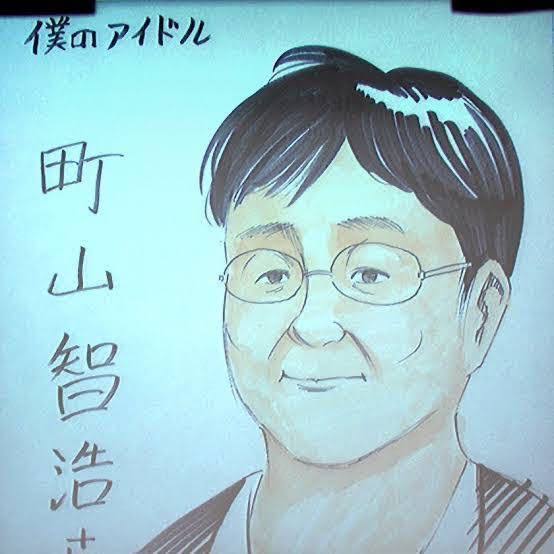 僕のアイドル
町山智浩